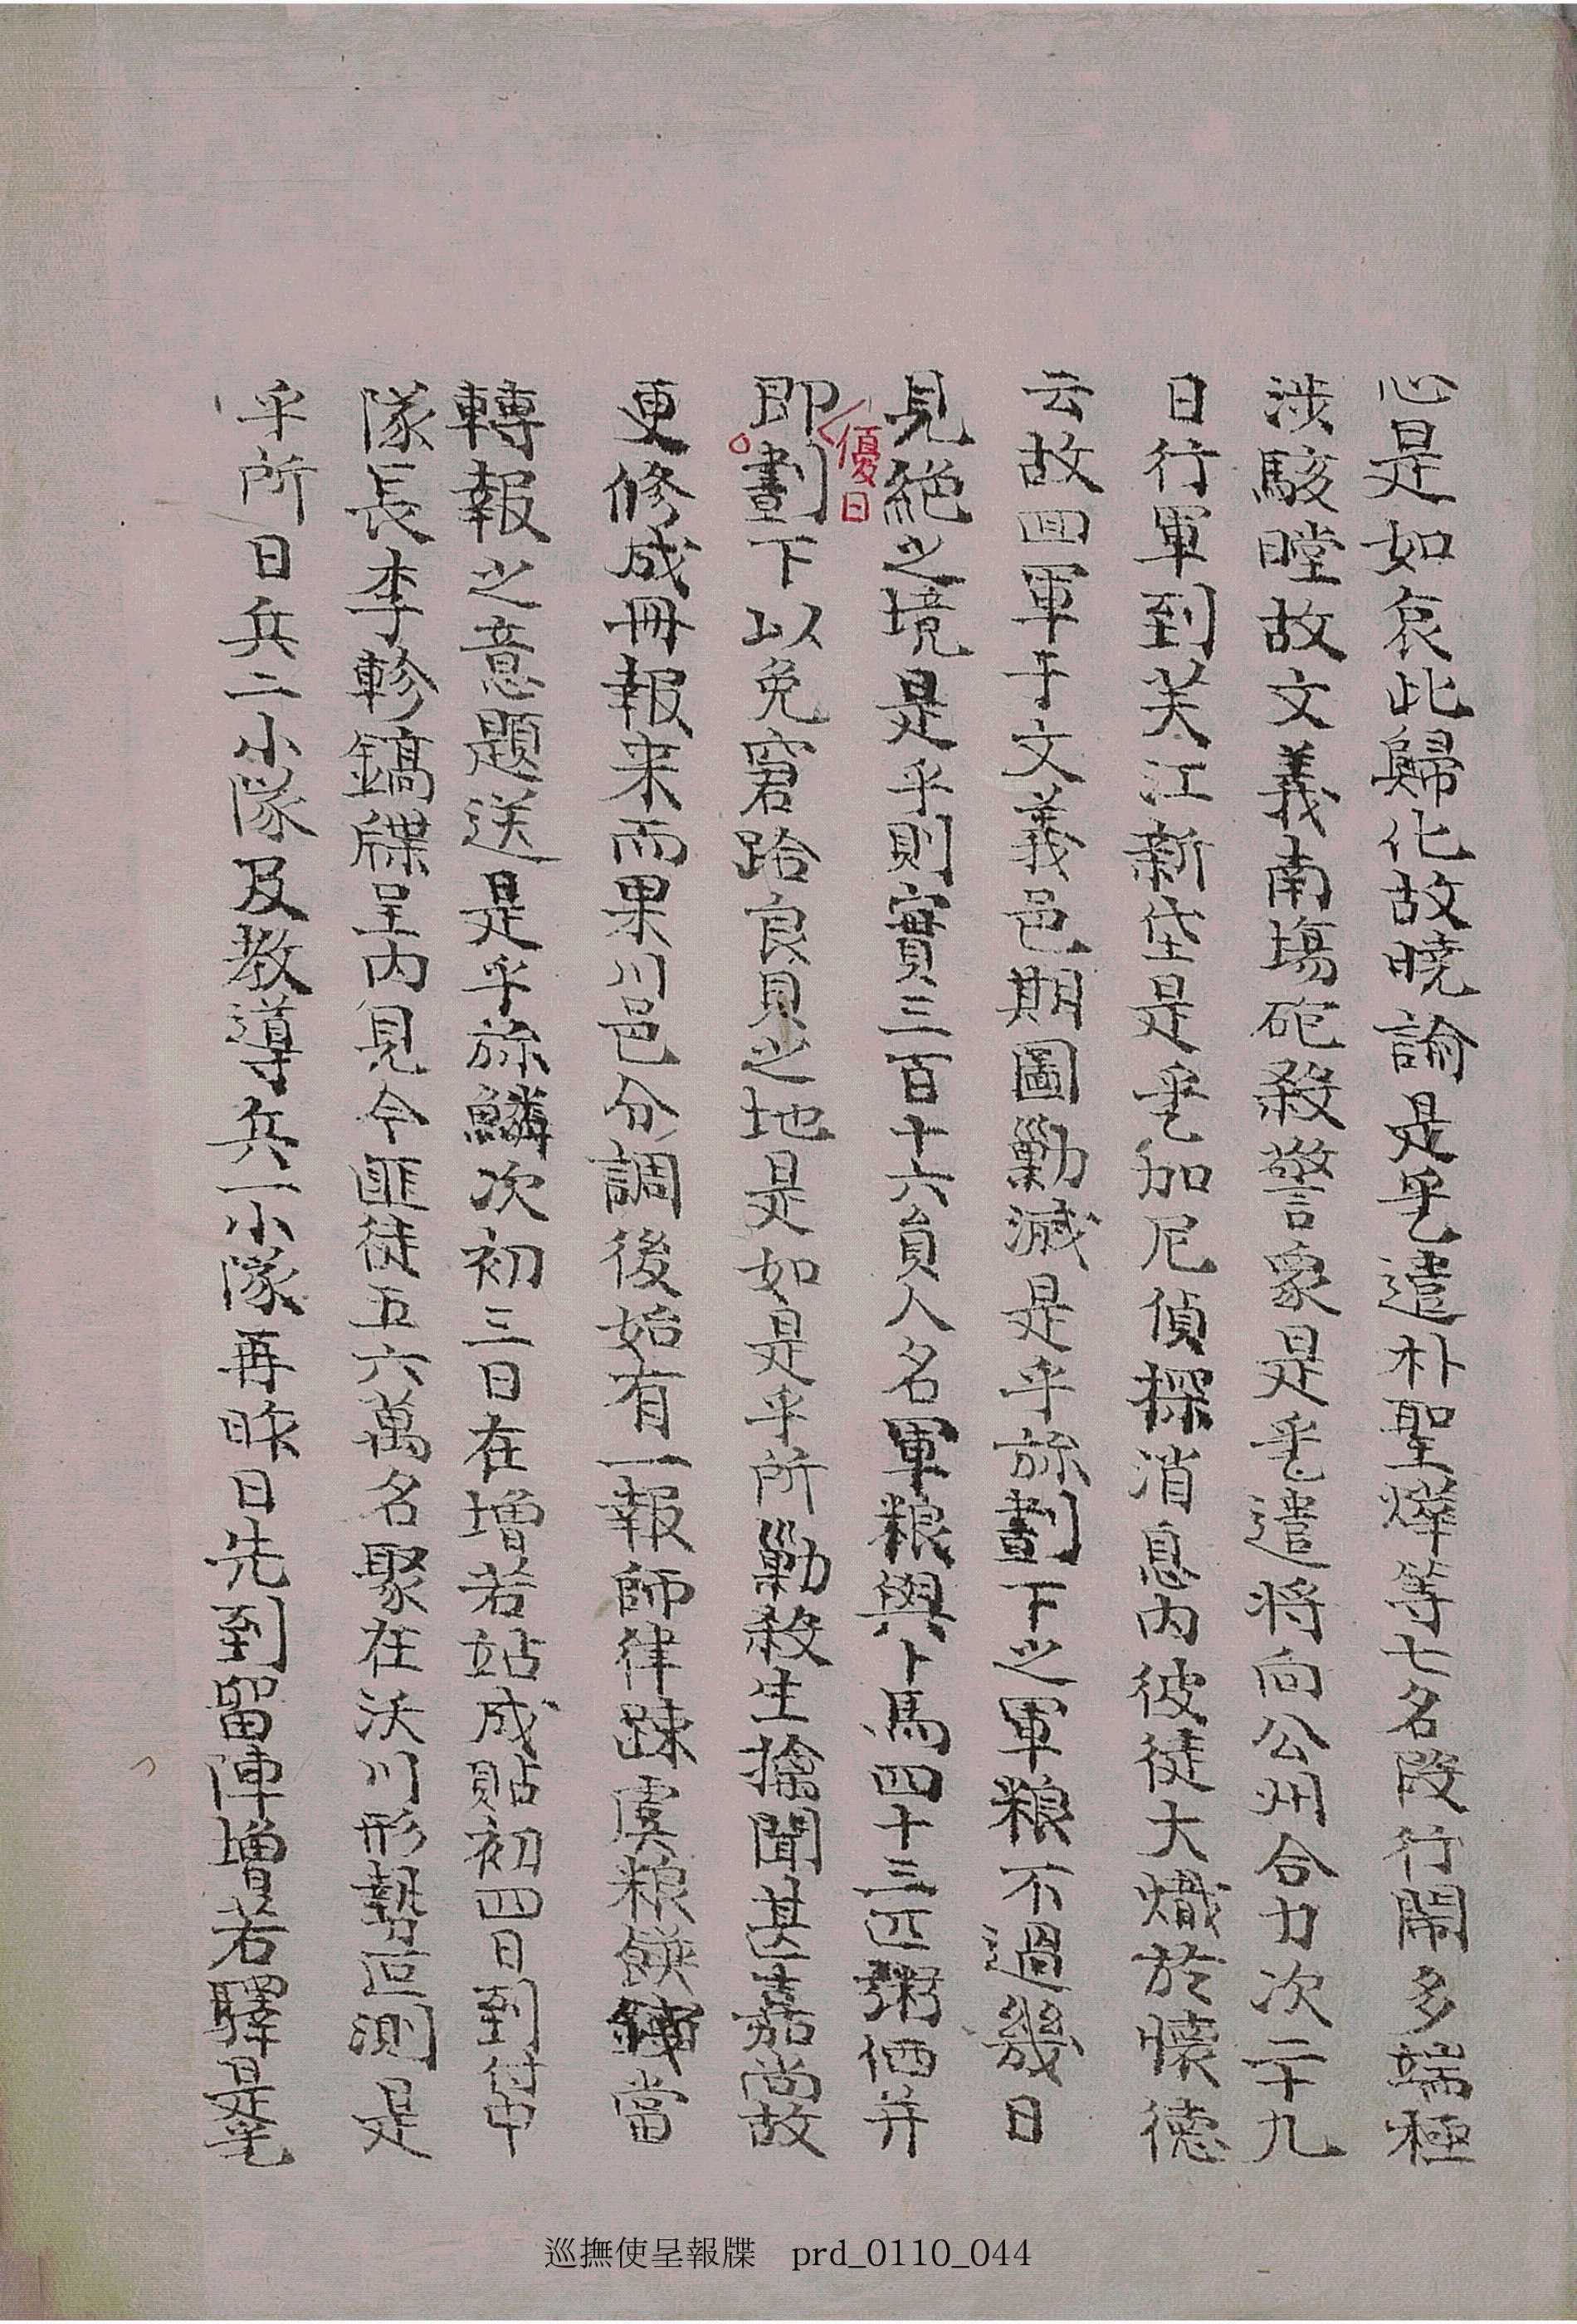 心是如哀此歸化故曉諭是乎乙遣朴聖燁等七名段行鬧多端極
涉駭瞠故文義南場砲殺警衆是乎乙遣將向公州合力次二十九
日行軍到芙江新垈是乎乙加尼偵探消息內彼徒大熾於懷德
云故回軍于文義邑期圖勦滅是乎旀劃下之軍粮不過幾日
見絕之境是乎則實三百十六員人名軍粮與卜馬四十三匹粥価并
優日
即劃下以免窘跲良貝之地是如是乎所勦殺生擒聞甚嘉尙故
更修成冊報来而果川邑分調後始有一報師律踈虞粮餉錢當
轉報之意題送是乎旀鱗次初三日在增若站成貼初四日到付中
隊長李軫鎬牒呈內見今匪徒五六萬名聚在沃川形勢叵測是
乎所日兵二小隊及敎導兵一小隊再昨日先到留陣增若驛是乎乙
巡撫使呈報牒 prd_0110_044